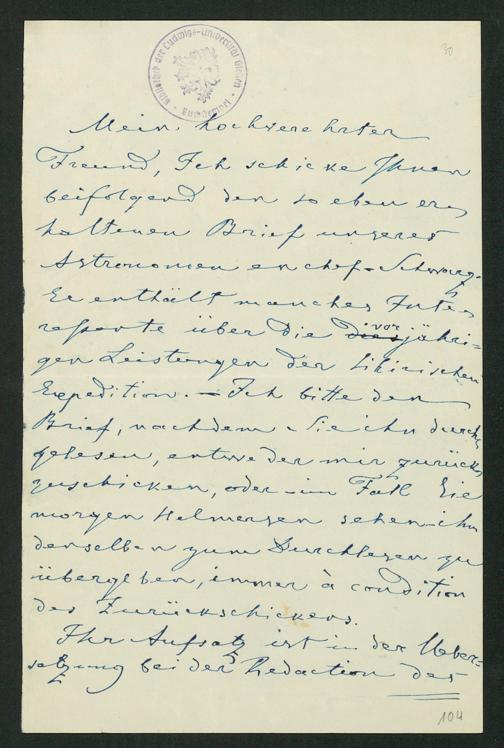 30
Bibliothek der Ludwigs-Universität Giessen
Mein hochverehrter
Freund, Ich schicke Ihnen
beifolgend den so eben er-
haltenen Brief unseres
Astronomen en chef - Schwarz.
Er enthält manches Inte-
ressante über die dies vorjähri-
gen Leistungen der Sibirischen
Expedition. — Ich bitte den
Brief, nachdem Sie ihn durch-
gelesen, entweder mir zurück
zuschicken, oder - im Fall Sie
morgen Helmersen sehen - ihn
denselben zum Durchlesen zu
übergeben, immer à condition
des Zurückschickens.
Ihr Aufsatz ist in der Ueber-
setzung bei der Redaction des
104